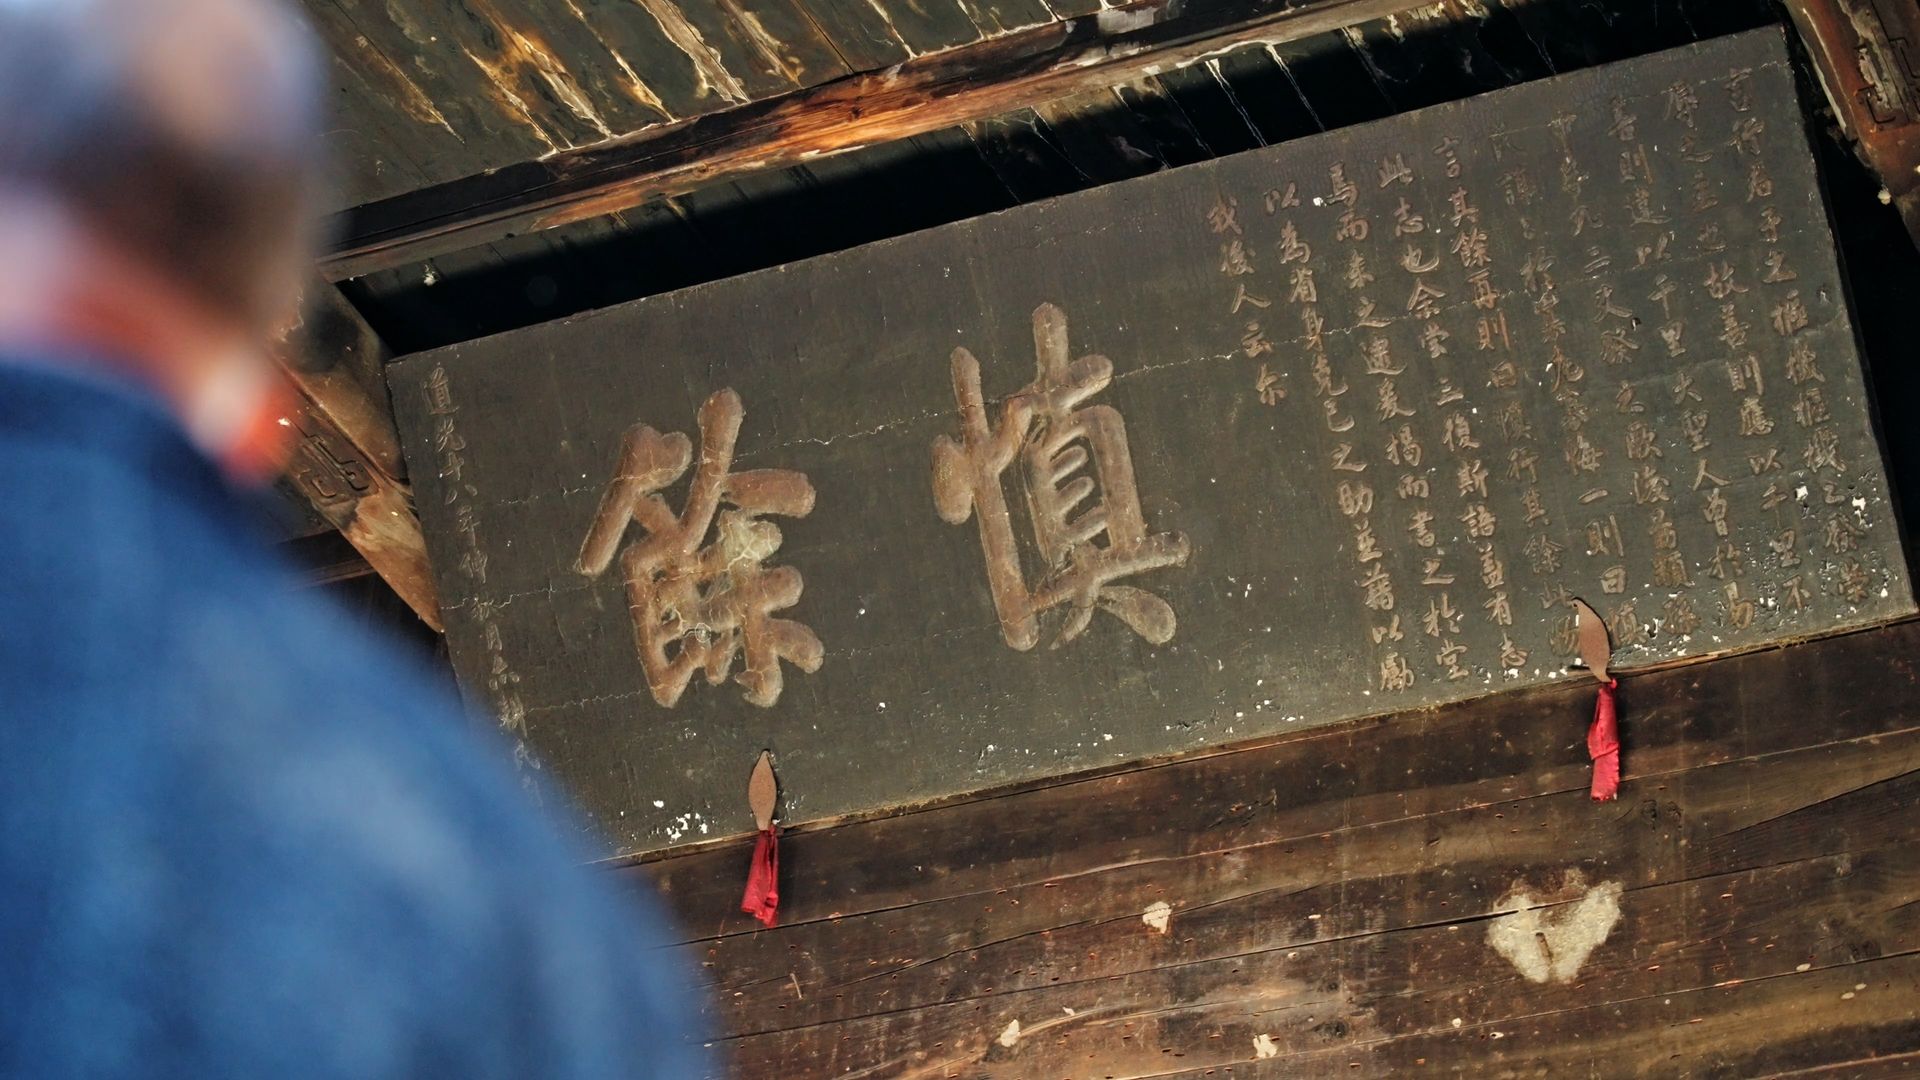 言行君子之樞機樞機之發榮
辱之主也故善則應以千里不
善則違以千里大聖人曾於易
中孚九二爻發之厥後為顓孫
氏諄〻於寡尤寡悔一則曰慎
言其餘再則曰慎行其餘此
此志也余嘗三復斯語蓋有志
焉而未之逮爰揭而書之於堂
以為省身克己之助並藉以勵
我後人云尔
慎餘
道光十八年仲